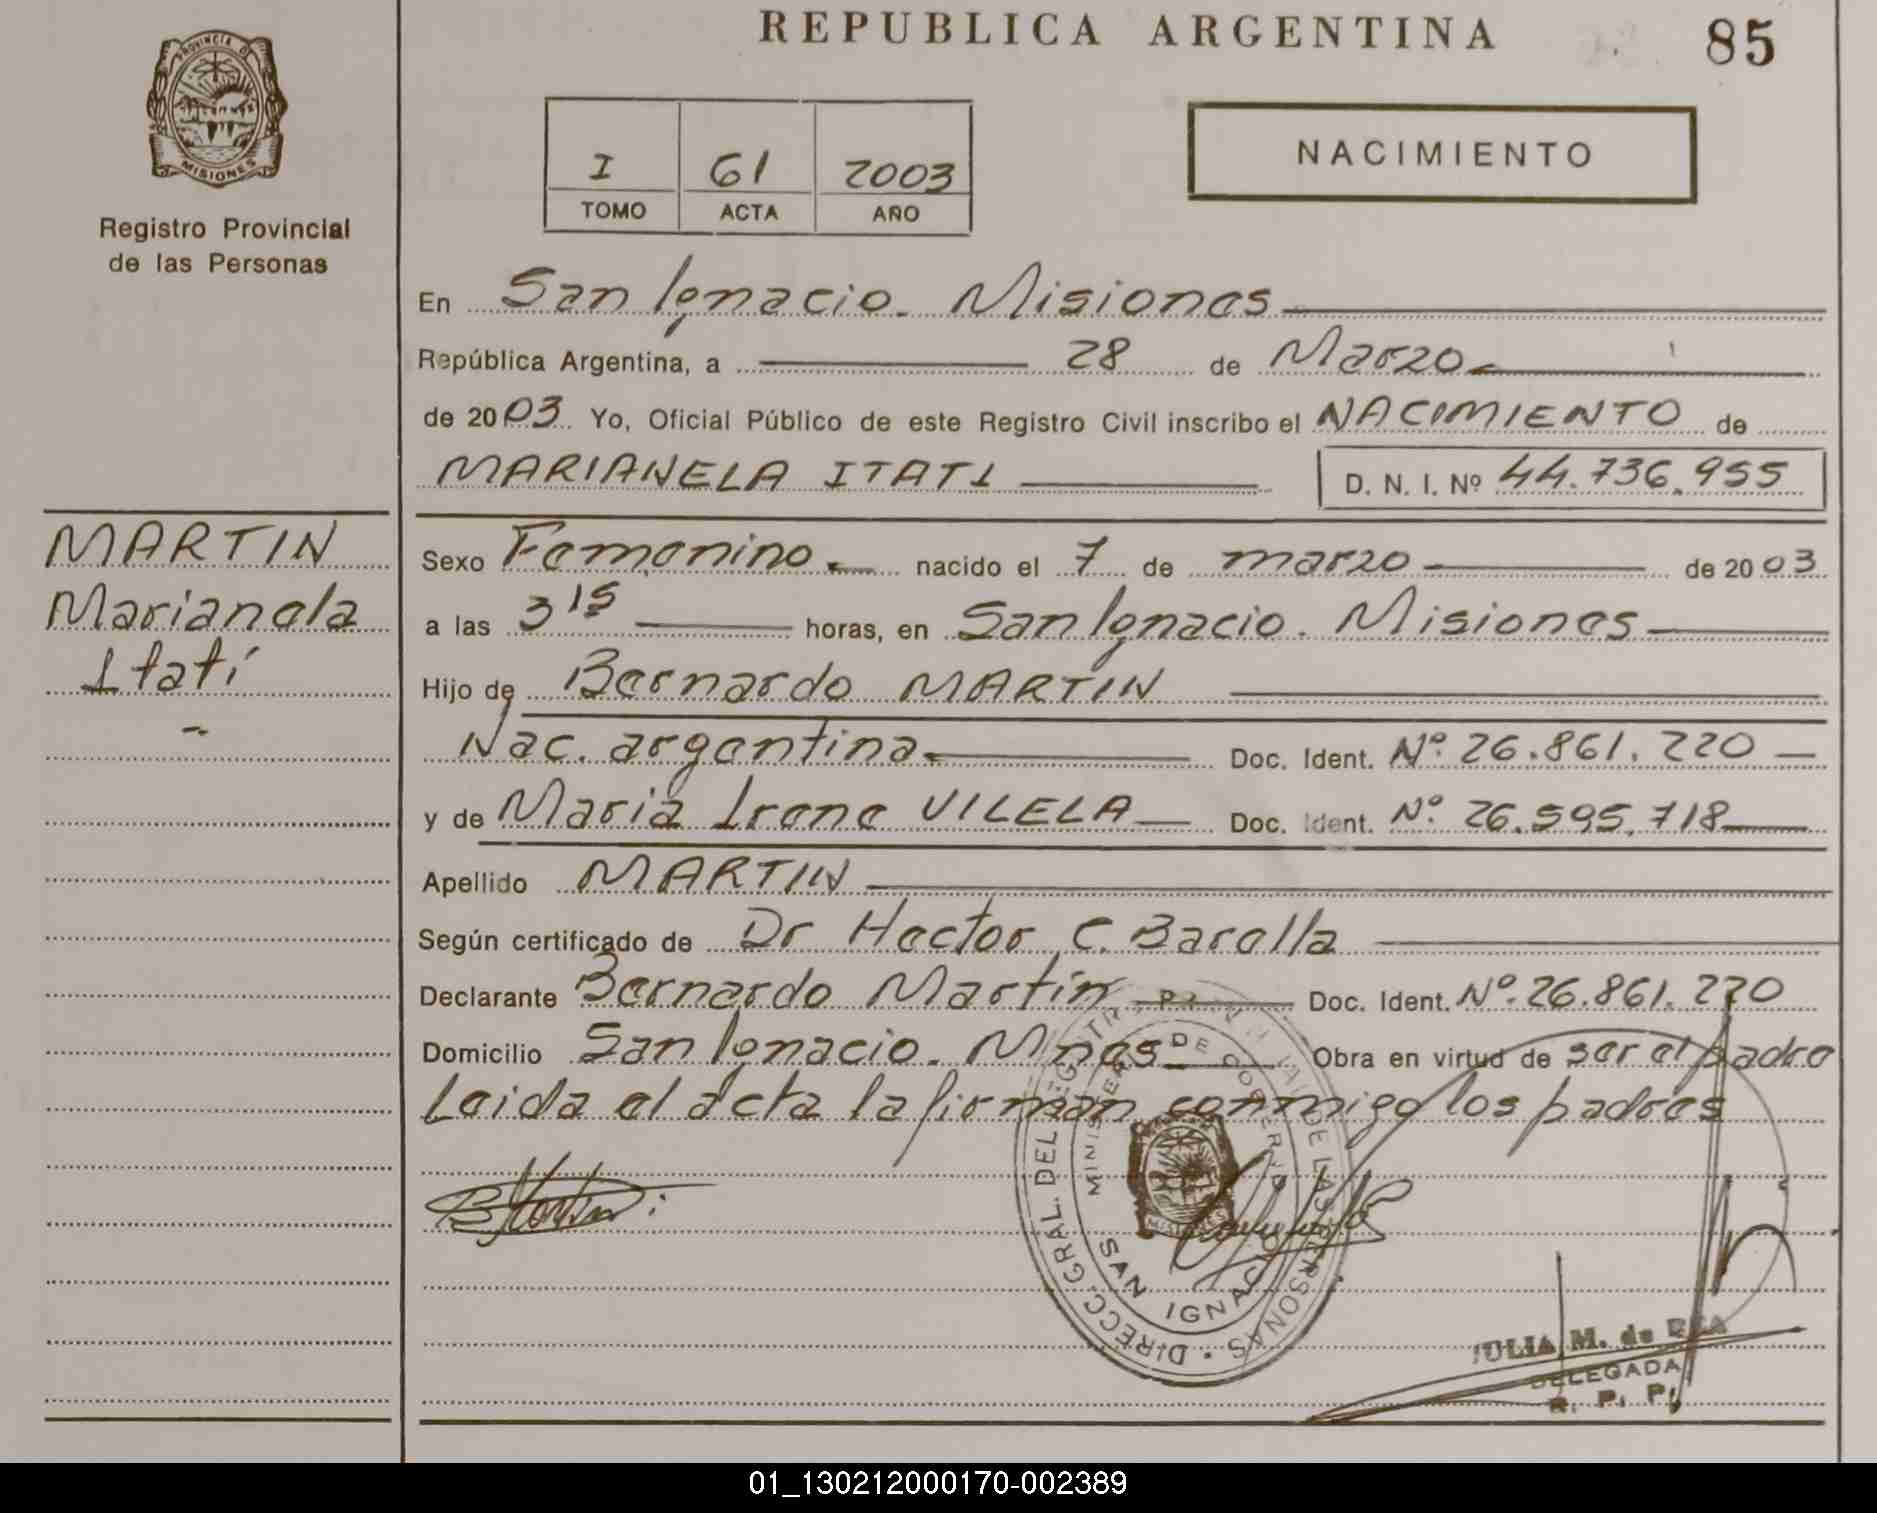 REPUBLICA ARGENTINA
85
PROVINCIA D
MISIONES
Registro Provincial
de las Personas
I 61 2003
TOMO ACTA AÑO
NACIMIENTO
En San Ignacio. Misiones
República Argentina, a 28 de Marzo
de 2003. Yo, Oficial Público de este Registro Civil inscribo el NACIMIENTO de
MARIANELA ITATI D. N. I. Nº 44.736.955
MARTIN
Marianela
Itatí
-
Sexo Femenino nacido el 7 de marzo de 2003
a las 3 15 horas, en San Ignacio. Misiones
Hijo de Bernardo MARTIN
Nac. argentina Doc. Ident. Nº 26.861.220
y de Maria Irene VILELA Doc. Ident. Nº 26.595.718
Apellido MARTIN
Según certificado de Dr Hector C. Barella
Declarante Bernardo Martín Doc. Ident. Nº 26.861.220
Domicilio San Ignacio. Mnes Obra en virtud de ser el padre
Leida el acta la firman conmigo los padres
DIRECC. GRAL. DEL REGISTRO PROVINCIAL DE LAS PERSONAS
MINISTERIO DE GOBIERNO
MISIONES
SAN IGNACIO
JULIA M. de REA
DELEGADA
R. P. P.
01_130212000170-002389